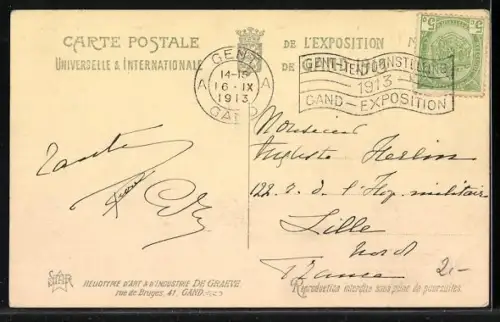 CARTE POSTALE DE L'EXPOSITION
UNIVERSELLE & INTERNATIONALE DE
GENT
14-15
16·IX
1913
GAND
A A
GENT-TENTOONSTELLING
1913
GAND-EXPOSITION
5
Monsieur
Auguste Herlin
122 r. d. l'Hop. militaire
Lille
Nord
France
2-
STAR
HELIOTYPIE D'ART & D'INDUSTRIE DE GRAEVE
rue de Bruges, 41, GAND
Reproduction interdite sous peine de poursuites.